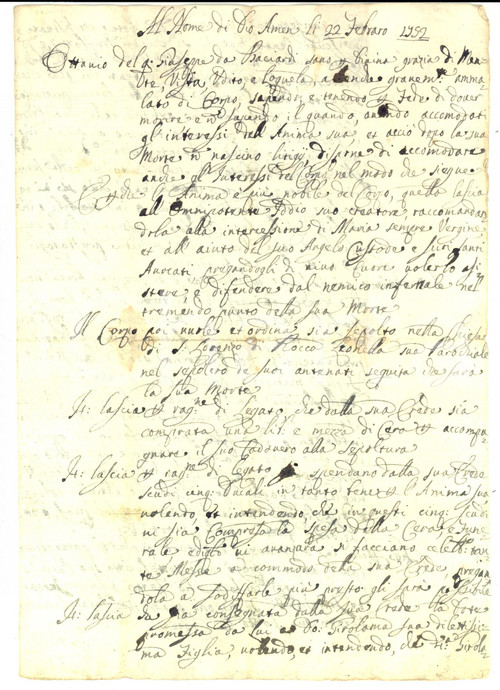 Al Nome di Dio Amen li 22 Febraro 1752
Ottavio del q. Giuseppe da sano p Divina grazia di Men-
te, Vista, Udito, e Loquela, gravem.te amma-
lato di Corpo, sapendo, e tenendo p Fede di dover
morire e nõ sapendo il quando, avendo accomodati
gl' interessi dell Anima sua et acciò dopo la sua
Morte nõ naschino litigij dispone di accomodare
anche gl' Interessi del Corpo nel modo che siegue
l' Anima è più nobile del Corpo, quella lascia
all' Omnipotente Iddio suo creatore raccomandan
dola alla intercessione di Maria sempre Vergine
et all' aiuto del suo Angelo Custode e suoi Santi
Avocati pregandogli di vivo Cuore volerlo asi
stere, e difendere dal nemico infernale nel
tremendo punto della sua Morte
Il Corpo poi vuole et ordina sia sepolto nella Chiesa
di S. Lorenzo di Rocca Leonella sua Parochiale
nel sepolcro de suoi antenati seguita che sarà
la sua Morte
It: lascia p rag.ne di Legato che dalla sua Erede sia
comprata una lib: e mezza di Cera p accompa
gnare il suo Cadavero alla sepoltura
It: lascia p rag.ne di Legato spendano dalla sua Erede
scudi cinq: Ducali in tanto bene p l' Anima sua
volendo, et intendendo, che in questi cinq: scudi
vi sia compresa la spesa della Cera, e fune-
rale e di ciò vi avanzarà si facciano celeb: tan
te Messe a commodo della sua Erede, pregan
dola a sodisfarle più presto gli sarà possibile
It: lascia sia consegnata dalla sua Erede la Dote
promessa da Lui a D. Girolama sua dilettissi
ma Figlia, volendo, et intendendo, che Girola